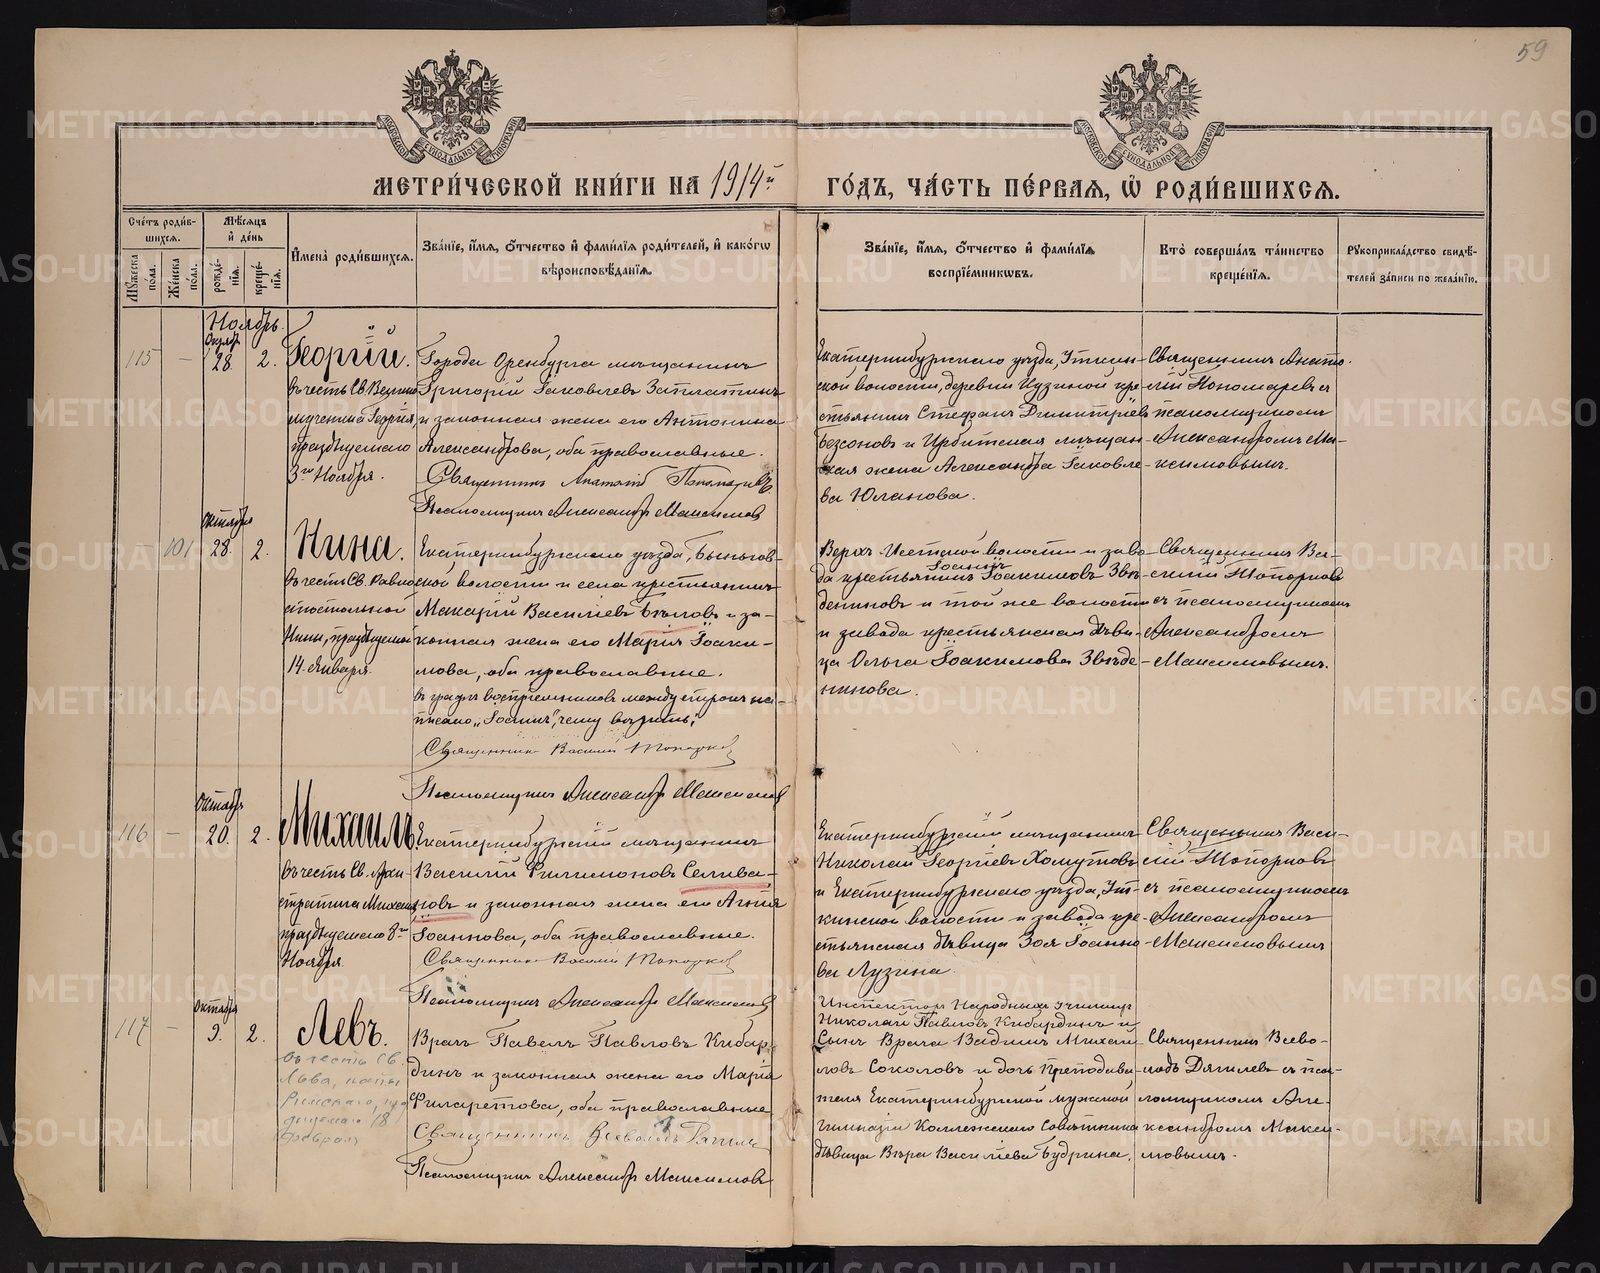 59
МЕТРИ́ЧЕСКОЙ КНИ́ГИ НА 1914й ГО́ДЪ, ЧА́СТЬ ПЕ́РВАЯ, Ѡ҆ РОДИ́ВШИХСЯ.
Сче́тъ роди́в-
шихся.
Му́жеска пола.
Же́нска по́ла.
Мѣ́сяцъ
и҆ де́нь
рожде́-
нїя.
креще́-
нїя.
И҆мена̀ роди́вшихся.
Зва́нїе, и҆́мя, ѻ҆́тчество и҆ фами́лїя роди́телей, и҆ како́гѡ
вѣроисповѣ́данїя.
Зва́нїе, и҆́мя, ѻ҆́тчество и҆ фами́лїя
воспрїе́мниковъ.
Кто̀ соверша́лъ та́инство
креще́нїя.
Рꙋкоприкла́дство свидѣ́-
телей за́писи по жела́нїю.
Ноябрь.
115
—
Октяб.
28.
2.
Георгій.
въ честь Св. Велико
мученика Георгія,
празднуемаго
3го Ноября.
Города Оренбурга мѣщанинъ
Григорій Іаковлевъ Заплатинъ
и законная жена его Антонина
Александрова, оба православные.
Священникъ Анатолій Пономаревъ
Псаломщикъ Александръ Максимовъ
Екатеринбургскаго уѣзда, Уткин-
ской волости, деревни Кузиной кре-
стьянинъ Стефанъ Димитріевъ
Безсоновъ и Ирбитская мѣщан-
ская жена Александра Іаковле-
ва Юланова.
Священникъ Анато-
лій Пономаревъ съ
псаломщикомъ
Александромъ Ма-
ксимовымъ.
101
Октября
28.
2.
Нина.
въ честь Св. Равно
апостольной
Нины, празднуемой
14. Января.
Екатеринбургскаго уѣзда, Быньгов-
ской волости и села крестьянинъ
Макарій Васильевъ Бѣловъ и за-
конная жена его Марія Іоаки-
мова, оба православные.
въ графѣ воспріемниковъ между строкъ на-
писано „Іоаннъ", чему вѣрить."
Священникъ Василій Топорковъ
Псаломщикъ Александръ Максимовъ
Верхъ-Исетской волости и заво
Іоаннъ
да крестьянинъ Іоакимовъ Звѣ-
дениновъ и той же волости
и завода крестьянская дѣви-
ца Ольга Іоакимова Звѣзде-
нинова.
Священникъ Ва-
силій Топорковъ
съ псаломщикомъ
Александромъ
Максимовымъ.
116
—
Октябрь
20.
2.
Михаилъ
въ честь Св. Архи-
стратига Михаила,
празднуемаго 8го
Ноября.
Екатеринбургскій мѣщанинъ
Василій Филимоновъ Селива-
новъ и законная жена его Агнія
Іоаннова, оба православные.
Священникъ Василій Топорковъ
Псаломщикъ Александръ Максимовъ
Екатеринбургскій мѣщанинъ
Николай Георгіевъ Хомутовъ
и Екатеринбургскаго уѣзда, Ут-
кинской волости и завода кре-
стьянская дѣвица Зоя Іоанно-
ва Лузина.
Священникъ Васи-
лій Топорковъ
съ псаломщикомъ
Александромъ
Максимовымъ
117
—
Октября
9.
2.
Левъ.
въ честь Св.
Льва, папы
Римскаго, пра
зднуемаго 18
Февраля
Врачъ Павелъ Павловъ Кибар-
динъ и законная жена его Марія
Филаретова, оба православные
Священникъ Всеволодъ Дягилевъ
Псаломщикъ Александръ Максимовъ
Инспекторъ Народныхъ Училищъ
Николай Павловъ Кибардинъ и
Сынъ Врача Вадимъ Михаи-
ловъ Соколовъ и дочь Преподава-
теля Екатеринбургской мужской
гимназіи Коллежскаго Совѣтника
дѣвица Вѣра Васильева Будрина.
Священникъ Всево-
лодъ Дягилевъ съ пса-
ломщикомъ Але-
ксандромъ Макси-
мовымъ.